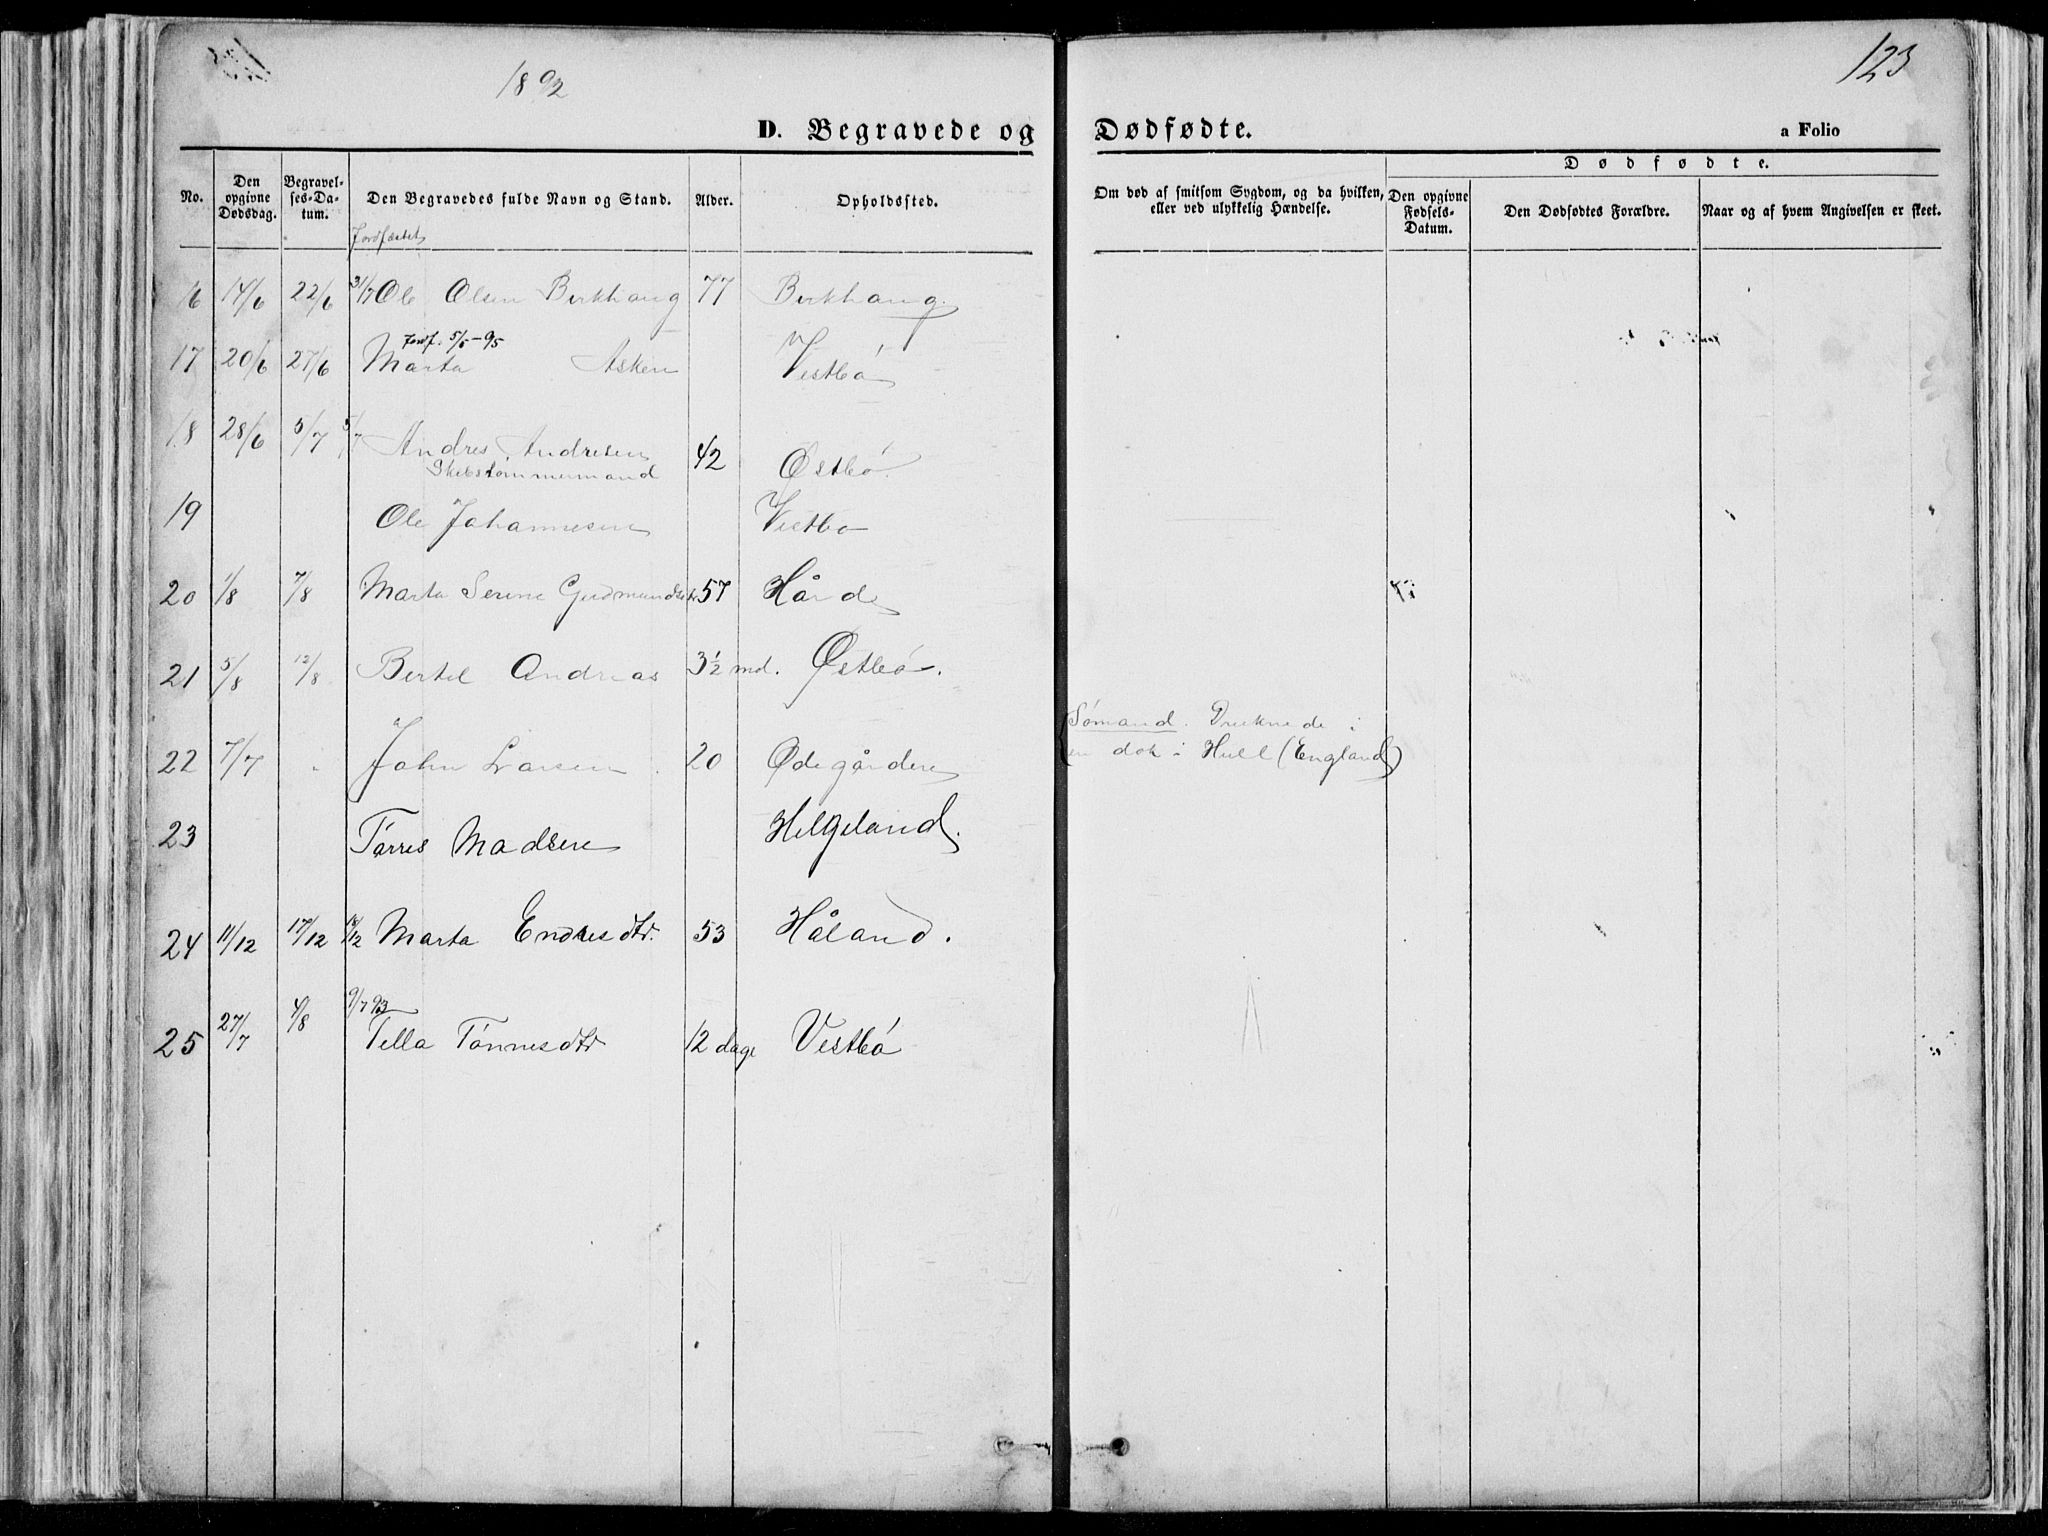 1892
123
D. Begravede og Dødfødte.
a Folio
No.
Den opgivne Dødsdag.
Begravel-ses-Da-tum.
Den Begravedes fulde Navn og Stand.
Alder.
Opholdssted.
Om død af smitsom Sygdom, og da hvilken, eller ved ulykkelig Hændelse.
Dødfødte.
Den opgivne Fødsels-Datum.
Den Dødfødtes Forældre.
Naar og af hvem Angivelsen er skeet.
Jordfæstet
16 14/6 22/6 31/7 Ole Olsen Birkhaug 77 Birkhaug.
Jordf. 5/5-95
17 20/6 27/6 Marta Asken Vestbø
18 28/6 5/7 5/7 Andres Andresen 42 Østbø.
Skibstømmermand
19 Ole Johannesen Vestbø
20 1/8 7/8 Marta Serine Gudmundsdtr 57 Hårde
21 5/8 12/8 Bertel Andreas 3½ md. Østbø.
22 7/7 John Larsen 20 Ødegårdene
Sømand. Druknede i
en dok i Hull (England)
23 Tørres Madsen Helgeland.
24 11/12 17/12 18/12 Marta Endresdtr. 53 Håland.
9/7 93
25 27/7 4/8 Tella Tønnesdtr 12 dage Vestbø